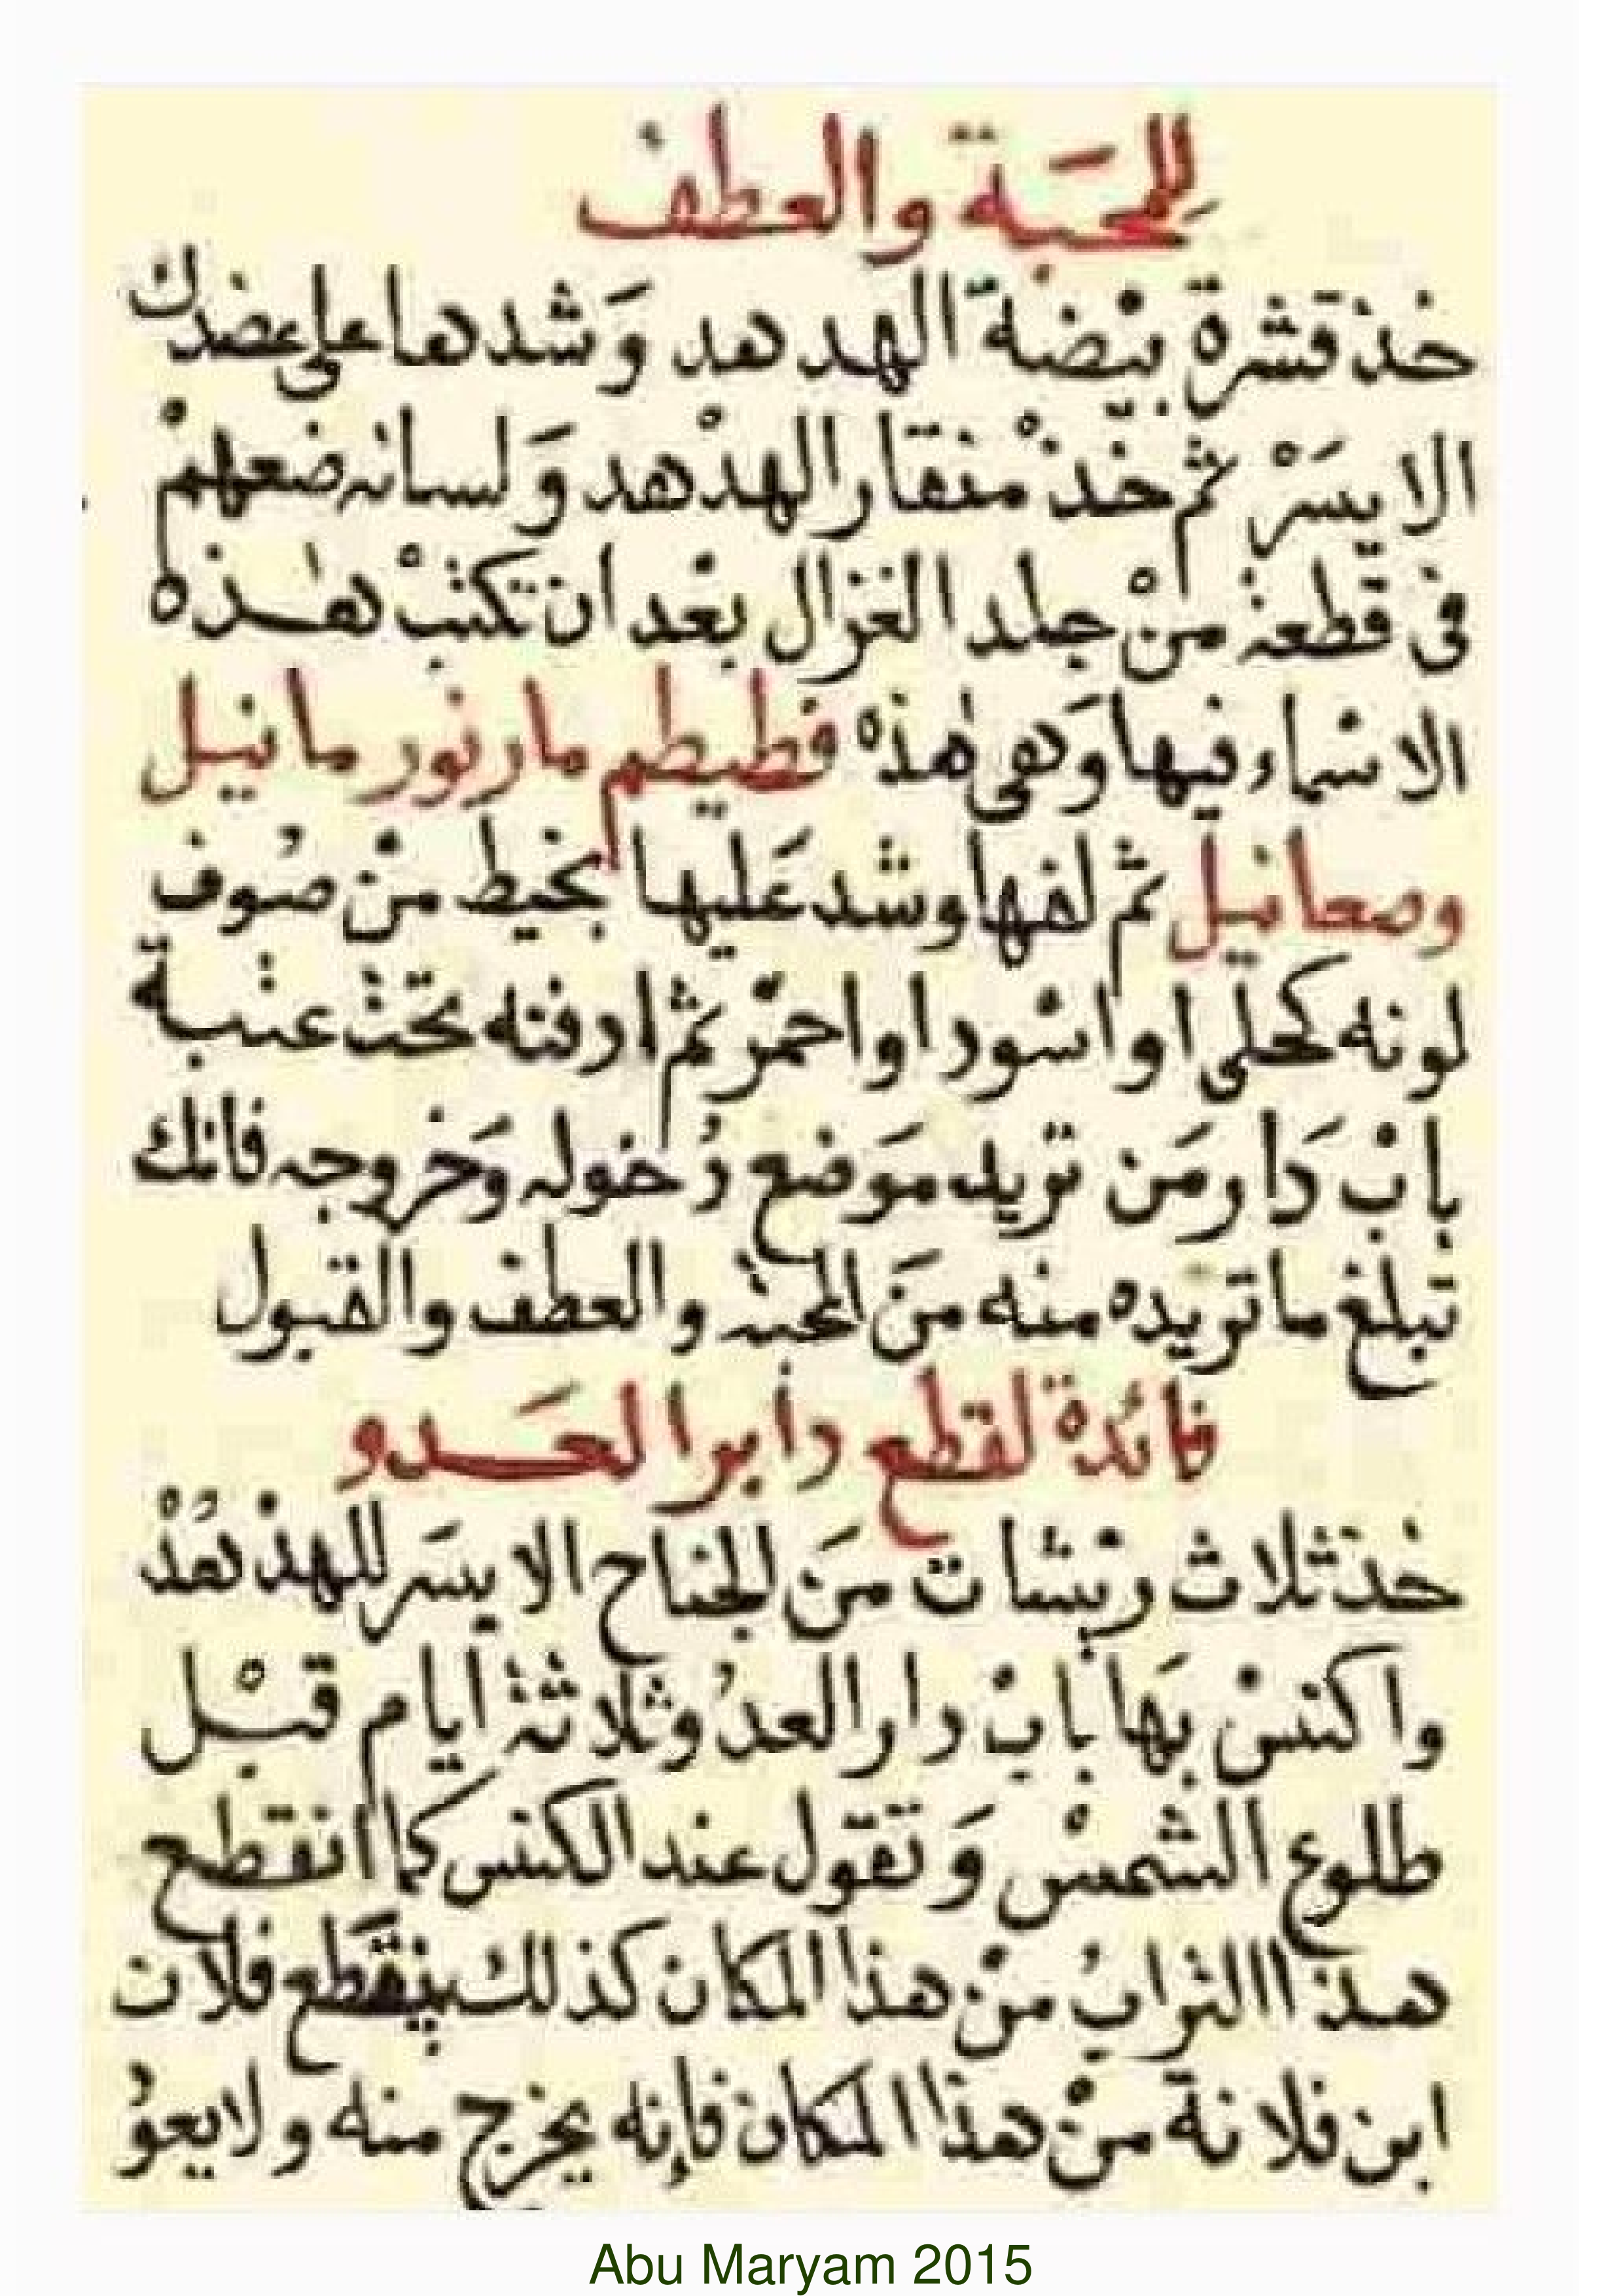 للمحبة والعطف
خذ قشرة بيضة الهدهد وَشدها على عضدك
الايسَرْ ثم خذْ منقار الهدْهد وَلسانه ضعهمْ
فى قطعة منْ جلد الغزال بعْد ان تكتبْ هـذه
الاسْماء فيها وَهى هذه فطيطم مارنور مانيل
وصعانيل ثم لفها وشد عَليها بخيط منْ صُوف
لونه كحلى او اسْود او احمْر ثم ادفنه تحْت عتبـة
بابْ دَار مَن تريد مَوضع دُخوله وَخروجه فانك
تبلغ ما تريده منه منَ المحبة والعطف والقبول
فائدة لقطع دابر العَـدو
خذ ثلاث ريْشات منَ الجناح الايسَر للهدْهُدْ
واكنسْ بهَا بابْ دار العدُو ثلاثة ايام قبْـل
طلوع الشمسْ وَتقول عند الكنس كما انقطع
هـذا التراب منْ هذا المكان كذلك ينقَطع فلان
ابن فلانة منْ هذا المكان فإنه يخرج منه ولايعوُ
Abu Maryam 2015